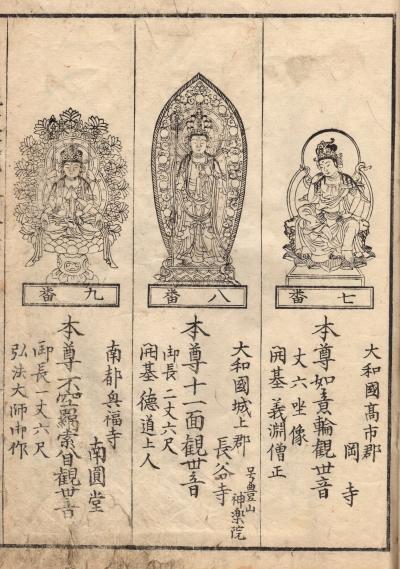 七番
大和國高市郡
岡寺
本尊如意輪觀世音
丈六坐像
開基義淵僧正
八番
大和國城上郡
長谷寺
号豊山
神楽院
本尊十一面觀世音
御長二丈六尺
開基德道上人
九番
南都興福寺
南圓堂
本尊不空羂索觀世音
御長一丈六尺
弘法大師御作